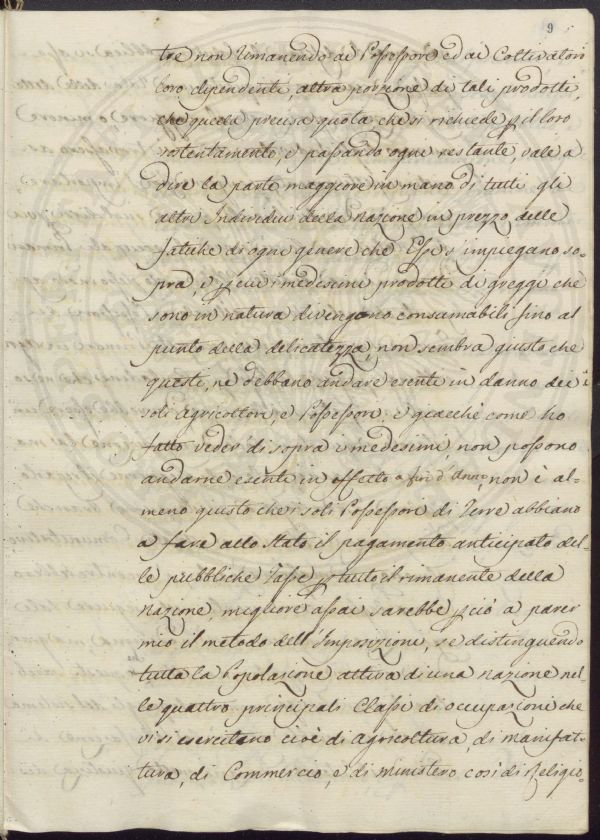 9
tre non rimanendo ai Possessori ed ai Coltivatori
loro dipendenti, altra porzione di tali prodotti,
che quella precisa quota che si richiede p il loro
sostentamento, e passando ogni restante, vale a
dire la parte maggiore in mano di tutti gli
altri Individui della Nazione in prezzo delle
fatiche di ogni genere che Essi s'impiegano so-
pra, e p cui i medesimi prodotti di greggi che
sono in natura divengono consumabili fino al
punto della delicatezza, non sembra giusto che
questi, ne debbano andare esenti in danno dei
soli Agricoltori, e Possessori; e giacchè come ho
fatto veder di sopra i medesimi non possono
andarne esenti in effetto a fin d'Anno, non è al-
meno giusto che i soli Possessori di Terre abbiano
a fare allo Stato il pagamento anticipato del-
le pubbliche Tasse p tutto il rimanente della
Nazione, migliore assai sarebbe p ciò a parer
mio il metodo dell'Imposizione, se distinguendo
tutta la Popolazione attiva di una Nazione nel-
le quattro principali Classi di occupazioni che
vi si esercitano cioè di Agricoltura, di manifat-
tura, di Commercio, e di ministero così di Religio-